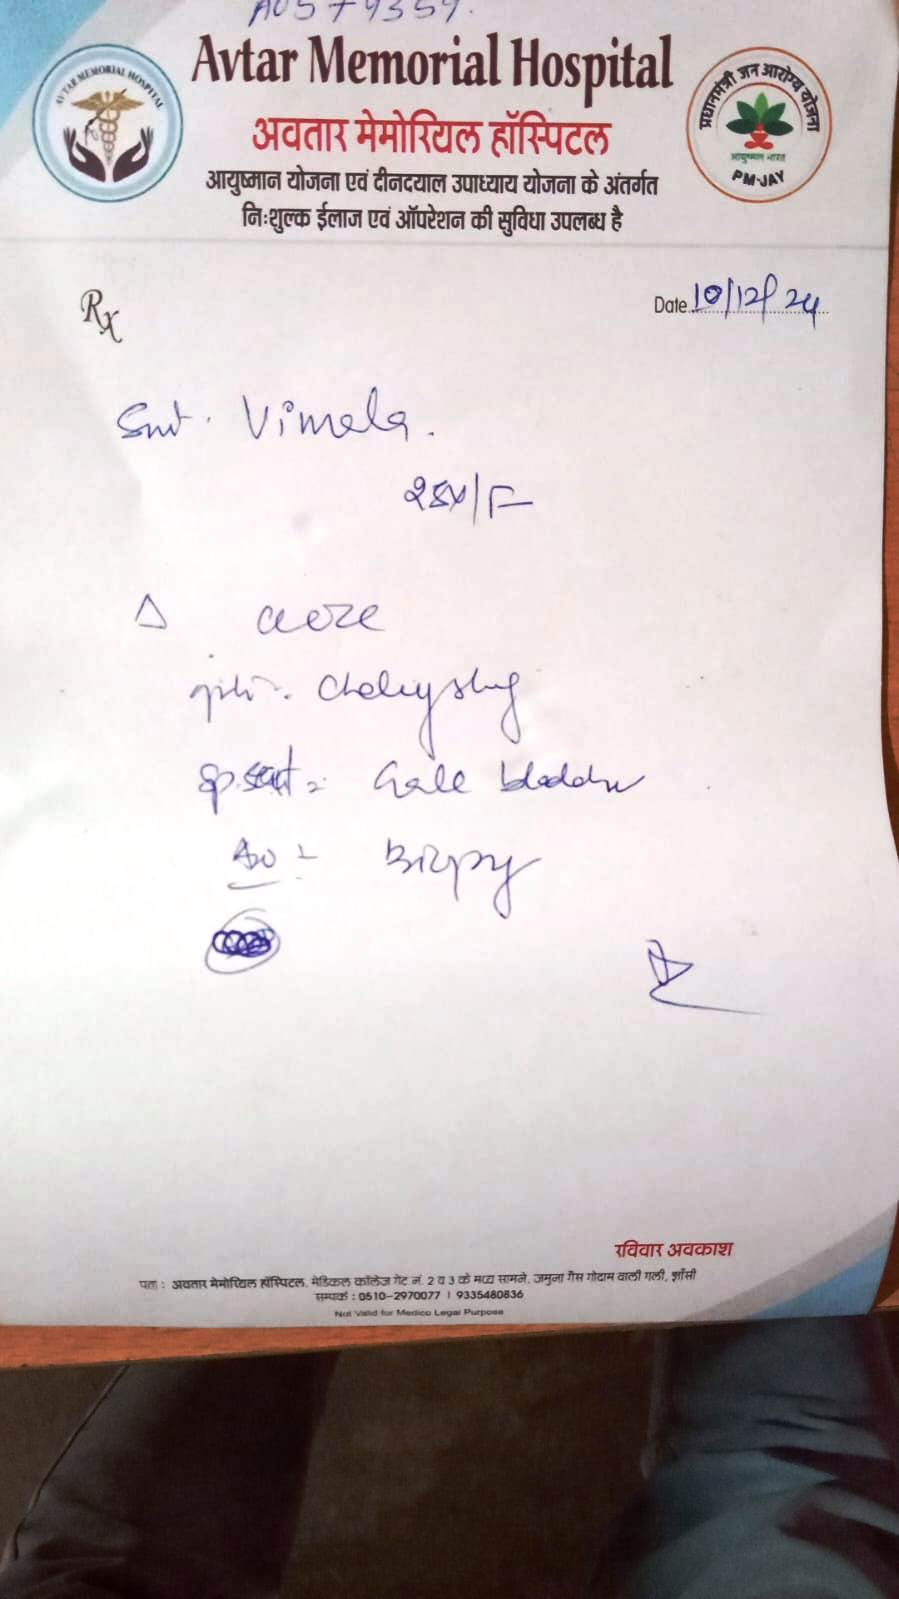 A0579359.
AVTAR MEMORIAL HOSPITAL
Avtar Memorial Hospital
अवतार मेमोरियल हॉस्पिटल
आयुष्मान योजना एवं दीनदयाल उपाध्याय योजना के अंतर्गत
निःशुल्क ईलाज एवं ऑपरेशन की सुविधा उपलब्ध है
प्रधानमंत्री जन आरोग्य योजना
आयुष्मान भारत
PM-JAY
Rx
Date 10/12/24
Smt. Vimala.
/F
Δ
Gall bladder
Biopsy
रविवार अवकाश
पता : अवतार मेमोरियल हॉस्पिटल, मेडिकल कॉलेज गेट नं. 2 व 3 के मध्य सामने, जमुना गैस गोदाम वाली गली, झाँसी
सम्पर्क : 0510-2970077 । 9335480836
Not Valid for Medico Legal Purpose